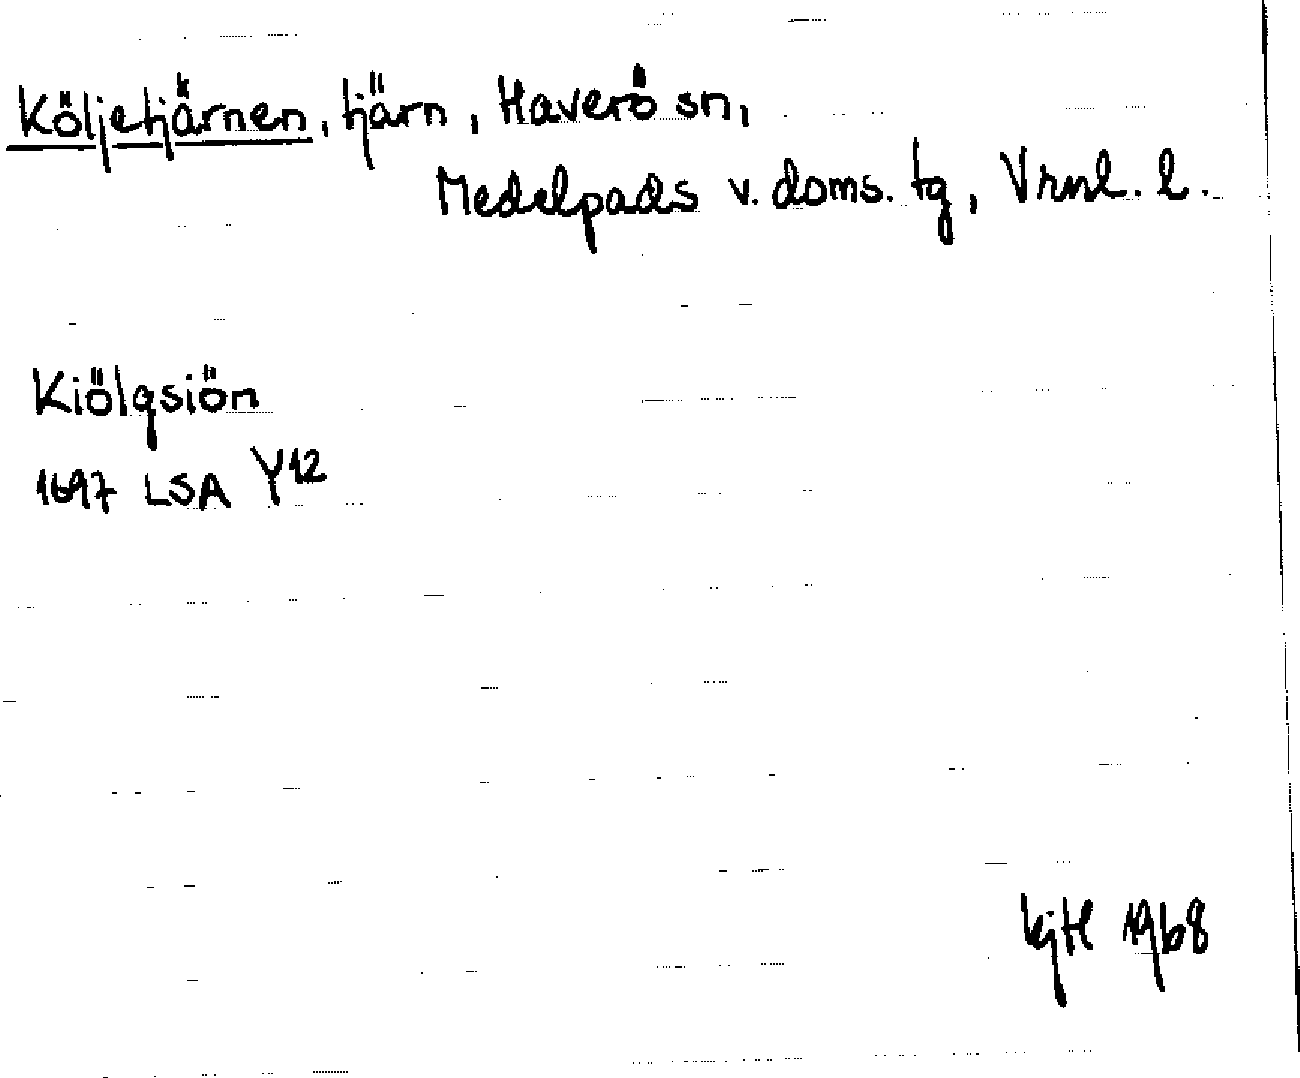 Köljetjärnen, tjärn, Haverö sn,
Medelpads v. doms. tg, Vrnl. l.
Kiölgsiön
1697 LSA Y12
KjH 1968